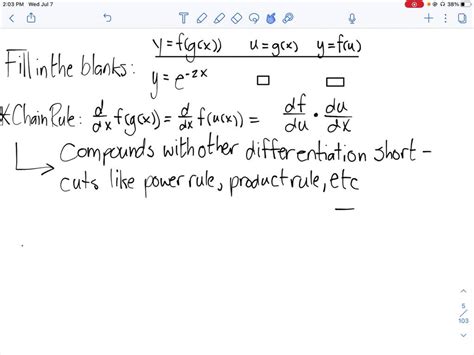 2:03 PM Wed Jul 7
38%
y=f(g(x)) u=g(x) y=f(u)
Fill in the blanks: y=e^-2x □ □
*Chain Rule: d/dx f(g(x)) = d/dx f(u(x)) = df/du · du/dx
Compounds with other differentiation short-
cuts like power rule, product rule, etc
5
103